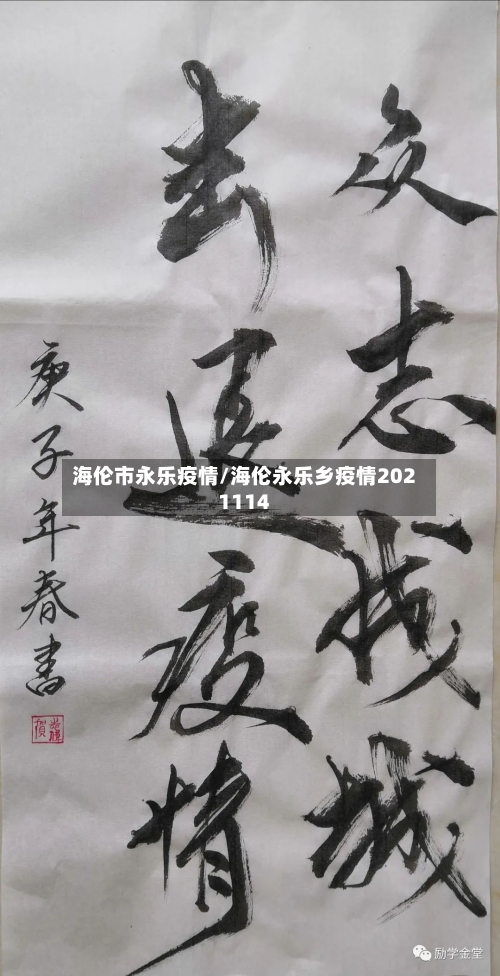 众志成城
击退疫情
庚子年春书
海伦市永乐疫情/海伦永乐乡疫情202
1114
励学金堂